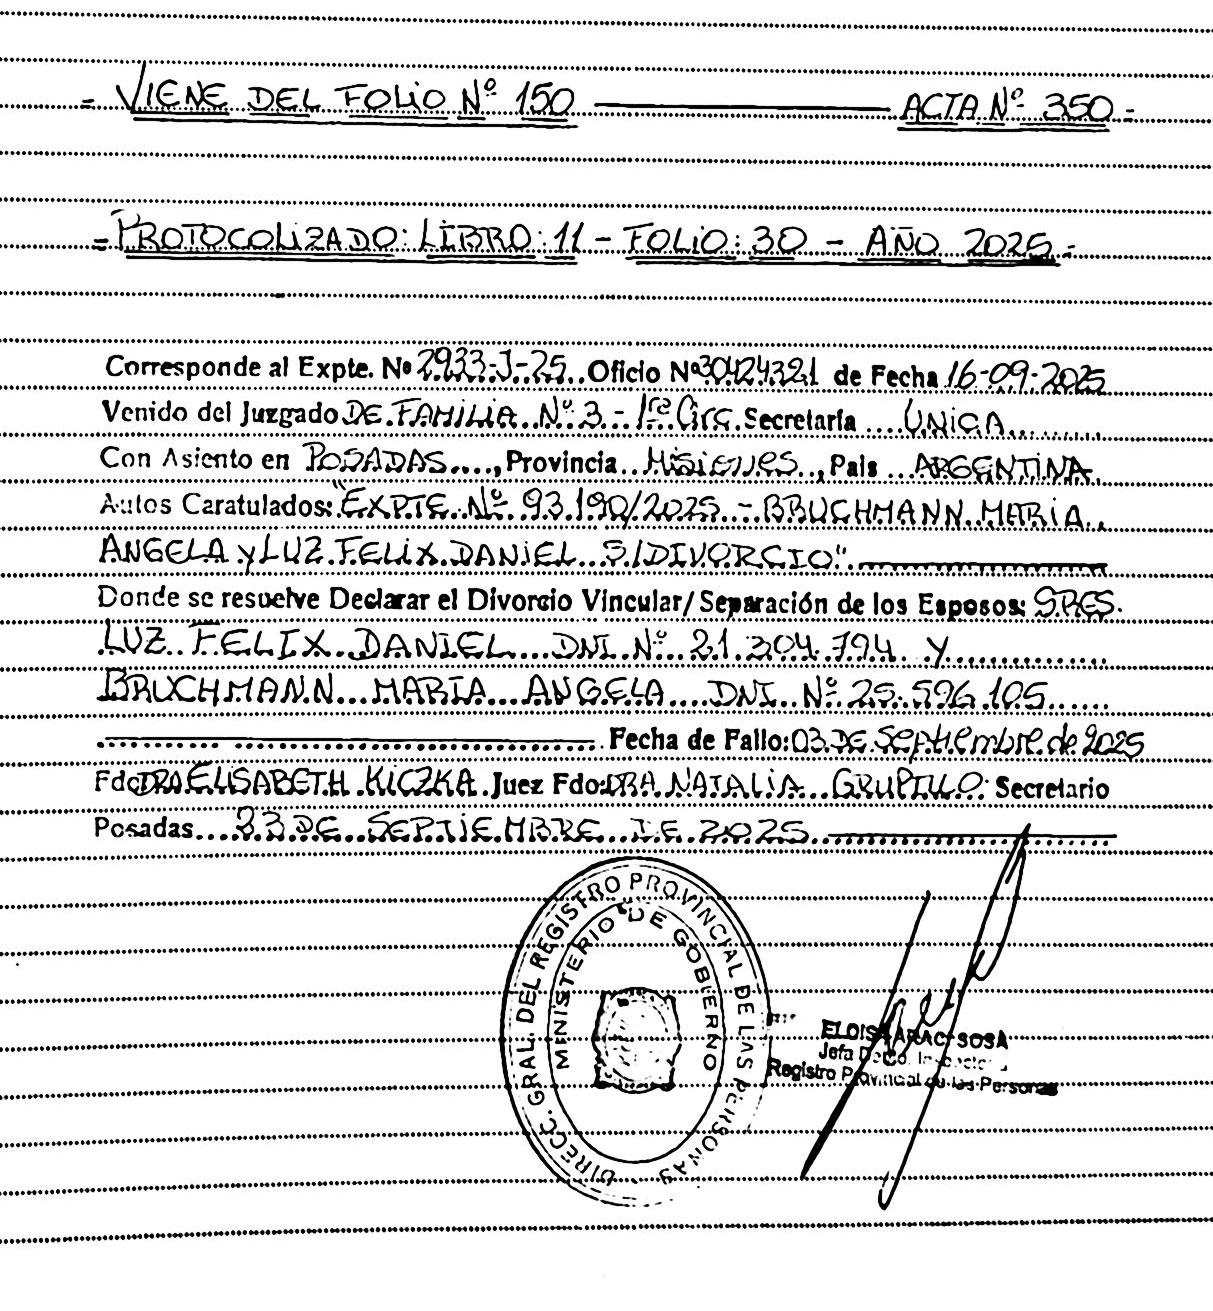 = VIENE DEL FOLIO Nº 150 ——— ACTA Nº 350 =
= PROTOCOLIZADO: LIBRO: 11 - FOLIO: 30 - AÑO 2025 =
Corresponde al Expte. Nº 2933-J-25 Oficio Nº 30424321 de Fecha 16-09-2025
Venido del Juzgado DE FAMILIA Nº 3 - 1ra Circ. Secretaría UNICA
Con Asiento en POSADAS, Provincia Misiones, Pais ARGENTINA
Autos Caratulados: "EXPTE Nº 93.190/2025 - BRUCHMANN MARIA
ANGELA y LUZ FELIX DANIEL S/DIVORCIO"
Donde se resuelve Declarar el Divorcio Vincular/Separación de los Esposos: SRES.
LUZ FELIX DANIEL DNI Nº 21.304.794 Y
BRUCHMANN MARIA ANGELA DNI Nº 25.596.105
Fecha de Fallo: 03 DE Septiembre de 2025
Fdo DRA ELISABETH KICZKA Juez Fdo: DRA NATALIA Secretario
Posadas 23 DE SEPTIEMBRE DE 2025
DIRECC. GRAL. DEL REGISTRO PROVINCIAL DE LAS PERSONAS
MINISTERIO DE GOBIERNO
SOSA
Jefa Dpto.
Registro Provincial de las Personas